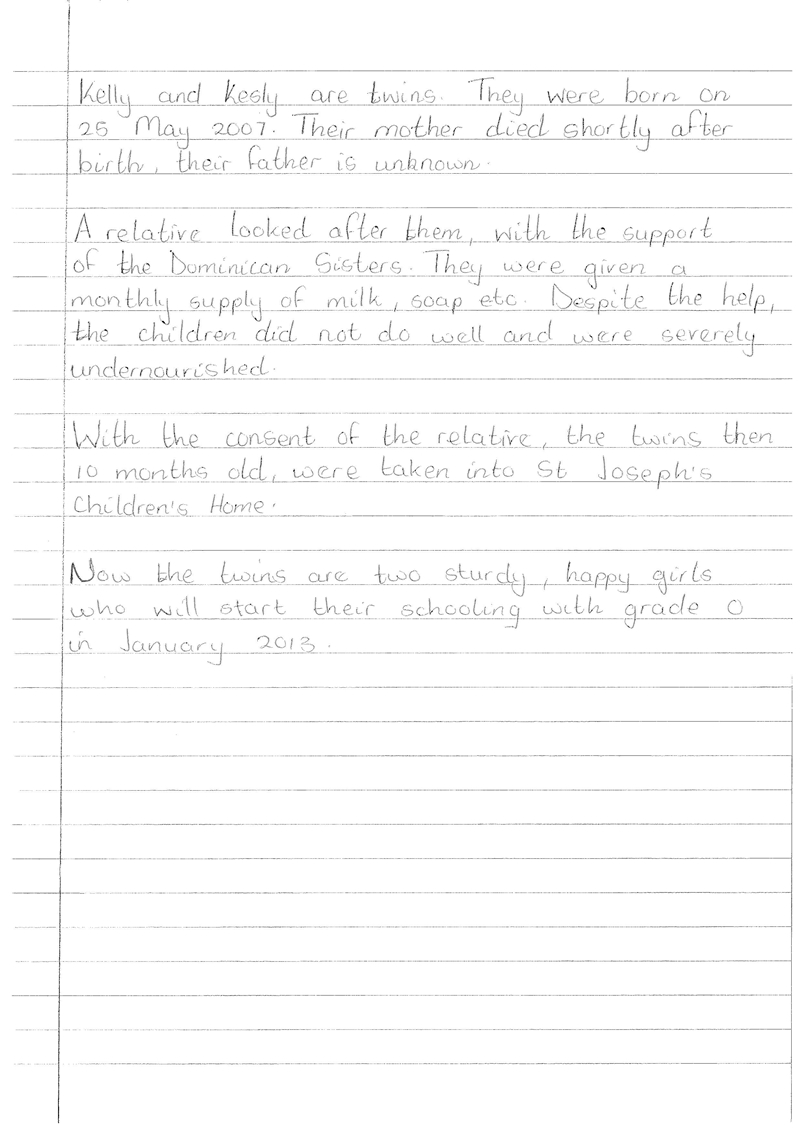 Kelly and Kesly are twins. They were born on
25 May 2007. Their mother died shortly after
birth, their father is unknown.
A relative looked after them, with the support
of the Dominican Sisters. They were given a
monthly supply of milk, soap etc. Despite the help,
the children did not do well and were severely
undernourished.
With the consent of the relative, the twins then
10 months old, were taken into St Joseph's
Children's Home.
Now the twins are two sturdy, happy girls
who will start their schooling with grade 0
in January 2013.